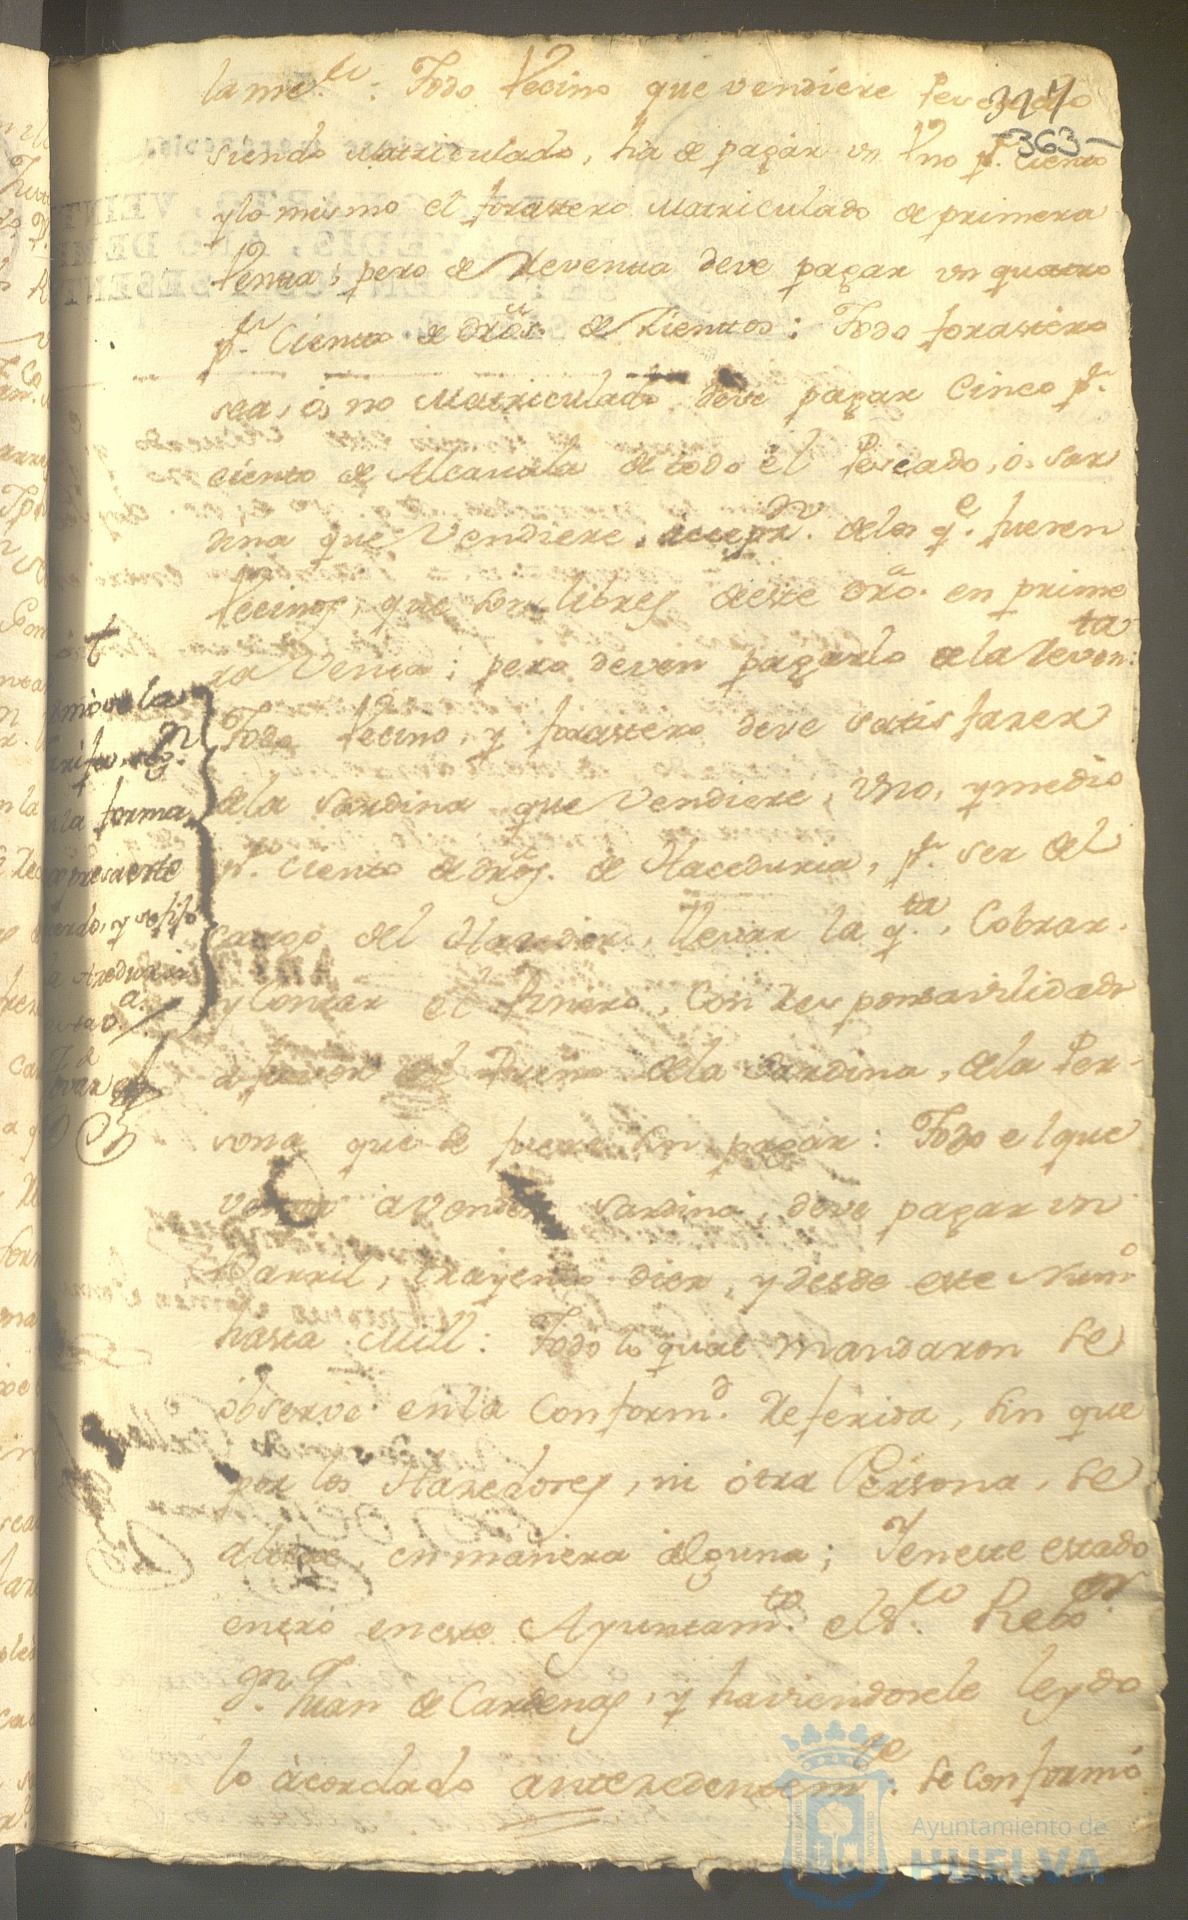 lam.te: Todo Vecino que vendiere Pescado
344
siendo Matriculado, ha de pagar un Uno p.r Ciento
363
y lo mismo el forastero Matriculado de primera
Venta; pero de Reventa deve pagar un quatro
p.r Ciento de dros. de Zientos; Todo forastero
sea, ó, no Matriculado deve pagar Cinco p.r
ciento de Alcavala de todo el Pescado, ó, sar
dina que Vendiere, de los q.e fueren
Vecinos, que son libres deeste dro. en prime
ra Venta; pero deven pagarlo de la Reven.ta
Todo Vecino, y forastero deve satisfazer
de la Sardina que Vendiere, Uno, y medio
p.r Ciento de dros. de Hazeduria, p.r ser del
cargo del Hazedor, llevar la q.ta, Cobrar.
y Contar el Dinero, Con Responsavilidad
a favor del Dueño de la Sardina, de la Per-
sona que se fuere sin pagar: Todo el que
a vender Sardina, deve pagar un
Barril, trayendo diez, y desde este Num.o
hasta Mill: Todo lo qual mandaron se
observe en la Conform.d Referida, sin que
por los Hazedores, ni otra Persona, se
altere, en manera alguna; Yen este estado
entró en este Ayuntam.to el s.r Rexi.or
D.n Juan de Cardenas, y haviendosele leydo
lo acordado antezedentem.te: se Conformó
la
la forma
Ayuntamiento de
HUELVA